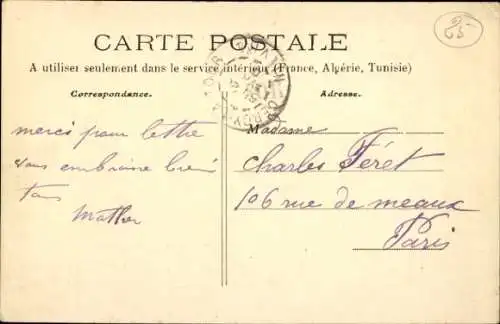 25
CARTE POSTALE
A utiliser seulement dans le service intérieur (France, Algérie, Tunisie)
Correspondance.
Adresse.
merci pour lettre
vous embrasse bien
tous
Mathen
Madame
Charles Féret
106 rue de meaux
Paris